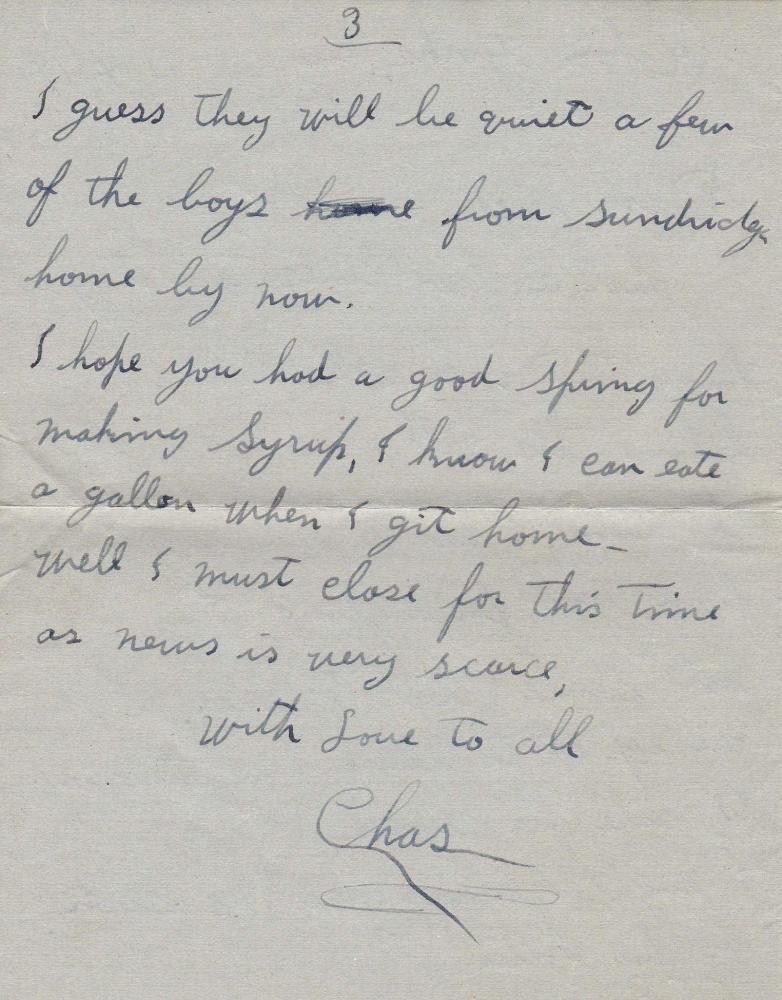 3
I guess they will be quiet a few
of the boys home from Sundridge
home by now.
I hope you had a good Spring for
making Syrup, I know I can eate
a gallon when I git home_
Well I must close for this time
as news is very scarce,
With Love to all
Chas